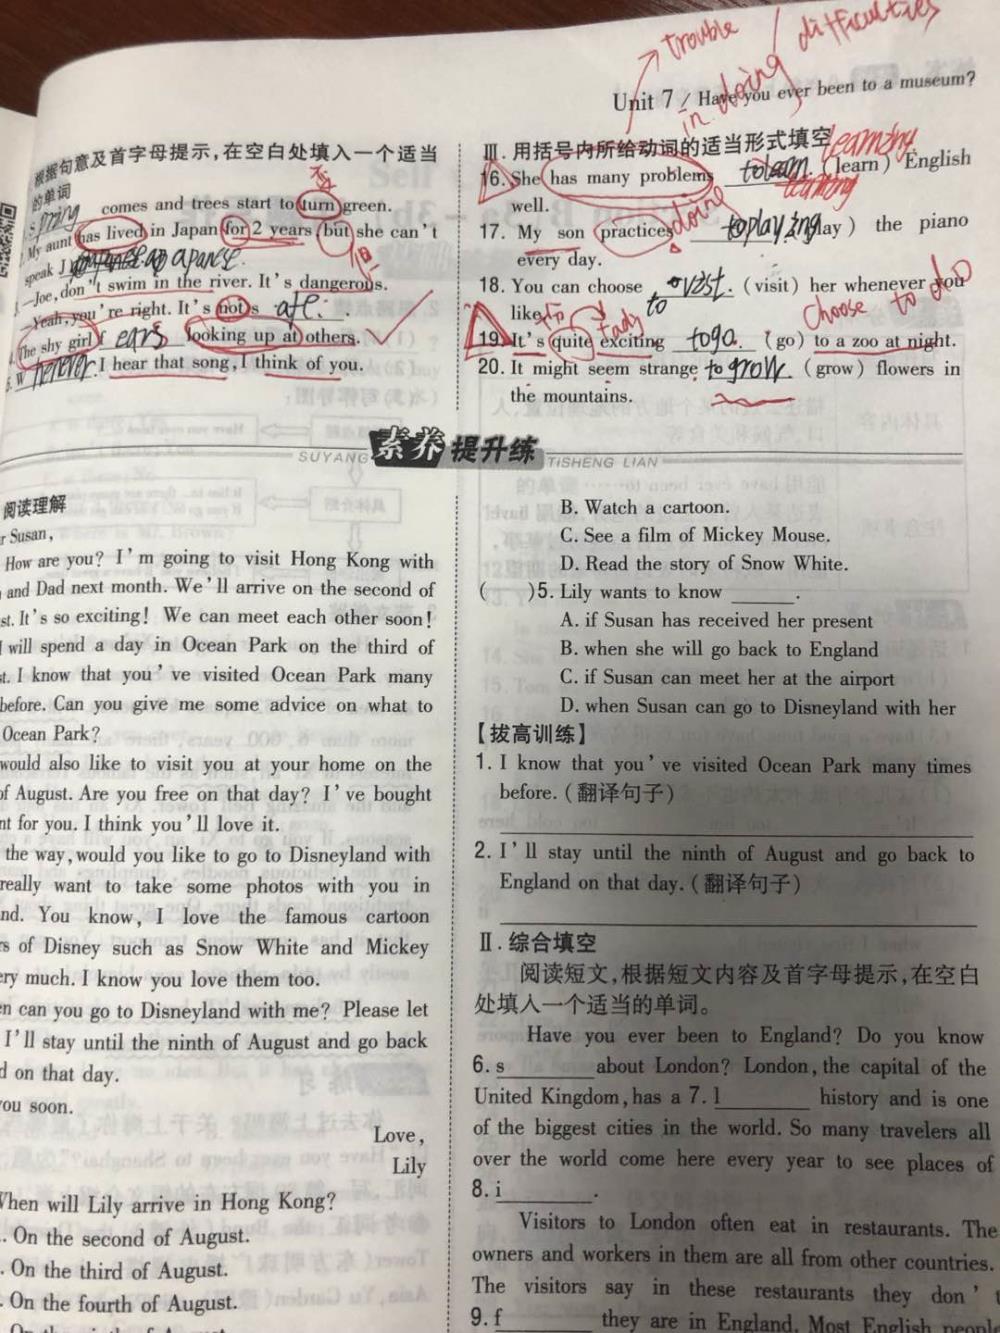 trouble
in doing / difficulties
Unit 7 / Have you ever been to a museum?
根据句意及首字母提示,在空白处填入一个适当
的单词
变
spring comes and trees start to turn green.
My aunt has lived in Japan for 2 years, but she can't
但
speak J apanese.
—Joe, don't swim in the river. It's dangerous.
—Yeah, you're right. It's not s afe.
The shy girl f ears looking up at others.
W henever I hear that song, I think of you.
素养提升练
SUYANG TISHENG LIAN
阅读理解
r Susan,
How are you? I'm going to visit Hong Kong with
and Dad next month. We'll arrive on the second of
st. It's so exciting! We can meet each other soon!
I will spend a day in Ocean Park on the third of
st. I know that you've visited Ocean Park many
before. Can you give me some advice on what to
Ocean Park?
would also like to visit you at your home on the
of August. Are you free on that day? I've bought
nt for you. I think you'll love it.
the way, would you like to go to Disneyland with
really want to take some photos with you in
nd. You know, I love the famous cartoon
rs of Disney such as Snow White and Mickey
ery much. I know you love them too.
en can you go to Disneyland with me? Please let
I'll stay until the ninth of August and go back
d on that day.
you soon.
Love,
Lily
When will Lily arrive in Hong Kong?
. On the second of August.
. On the third of August.
. On the fourth of August.
Ⅲ. 用括号内所给动词的适当形式填空
learning
16. She has many problems to learn (learn) English
learning
well.
doing
17. My son practices playing (play) the piano
every day.
18. You can choose to visit. (visit) her whenever you
like.
choose to do
19. It's quite exciting to go. (go) to a zoo at night.
20. It might seem strange to grow. (grow) flowers in
the mountains.
B. Watch a cartoon.
C. See a film of Mickey Mouse.
D. Read the story of Snow White.
( )5. Lily wants to know ______.
A. if Susan has received her present
B. when she will go back to England
C. if Susan can meet her at the airport
D. when Susan can go to Disneyland with her
【拔高训练】
1. I know that you've visited Ocean Park many times
before. (翻译句子)
2. I'll stay until the ninth of August and go back to
England on that day. (翻译句子)
Ⅱ. 综合填空
阅读短文,根据短文内容及首字母提示,在空白
处填入一个适当的单词。
Have you ever been to England? Do you know
6. s________ about London? London, the capital of the
United Kingdom, has a 7. l________ history and is one
of the biggest cities in the world. So many travelers all
over the world come here every year to see places of
8. i________.
Visitors to London often eat in restaurants. The
owners and workers in them are all from other countries.
The visitors say in these restaurants they don't
9. f________ they are in England. Most English people